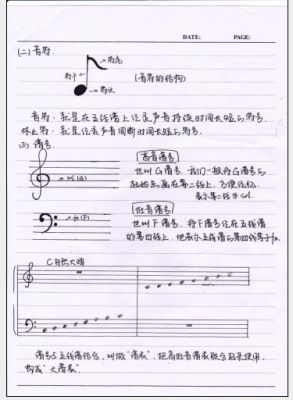 DATE: PAGE:
(二) 音符.
符尾
符干
(音符的结构)
符头
音符: 就是在五线谱上记录声音持续时间长短的符号.
休止符: 就是记录声音间断时间长短的符号.
(三) 谱号
高音谱号
也叫G谱号, 我们一般将G谱号的
起始点画在第二线上, 方便记忆,
表示第二线为sol.
sol (G)
低音谱号
也叫F谱号. 将F谱号记在五线谱
的第四线上, 也表示五线谱的第四线等于fa.
fa (F)
C自然大调
谱号与五线谱结合, 叫做"谱表", 把高低音谱表联合起来使用,
构成"大谱表".